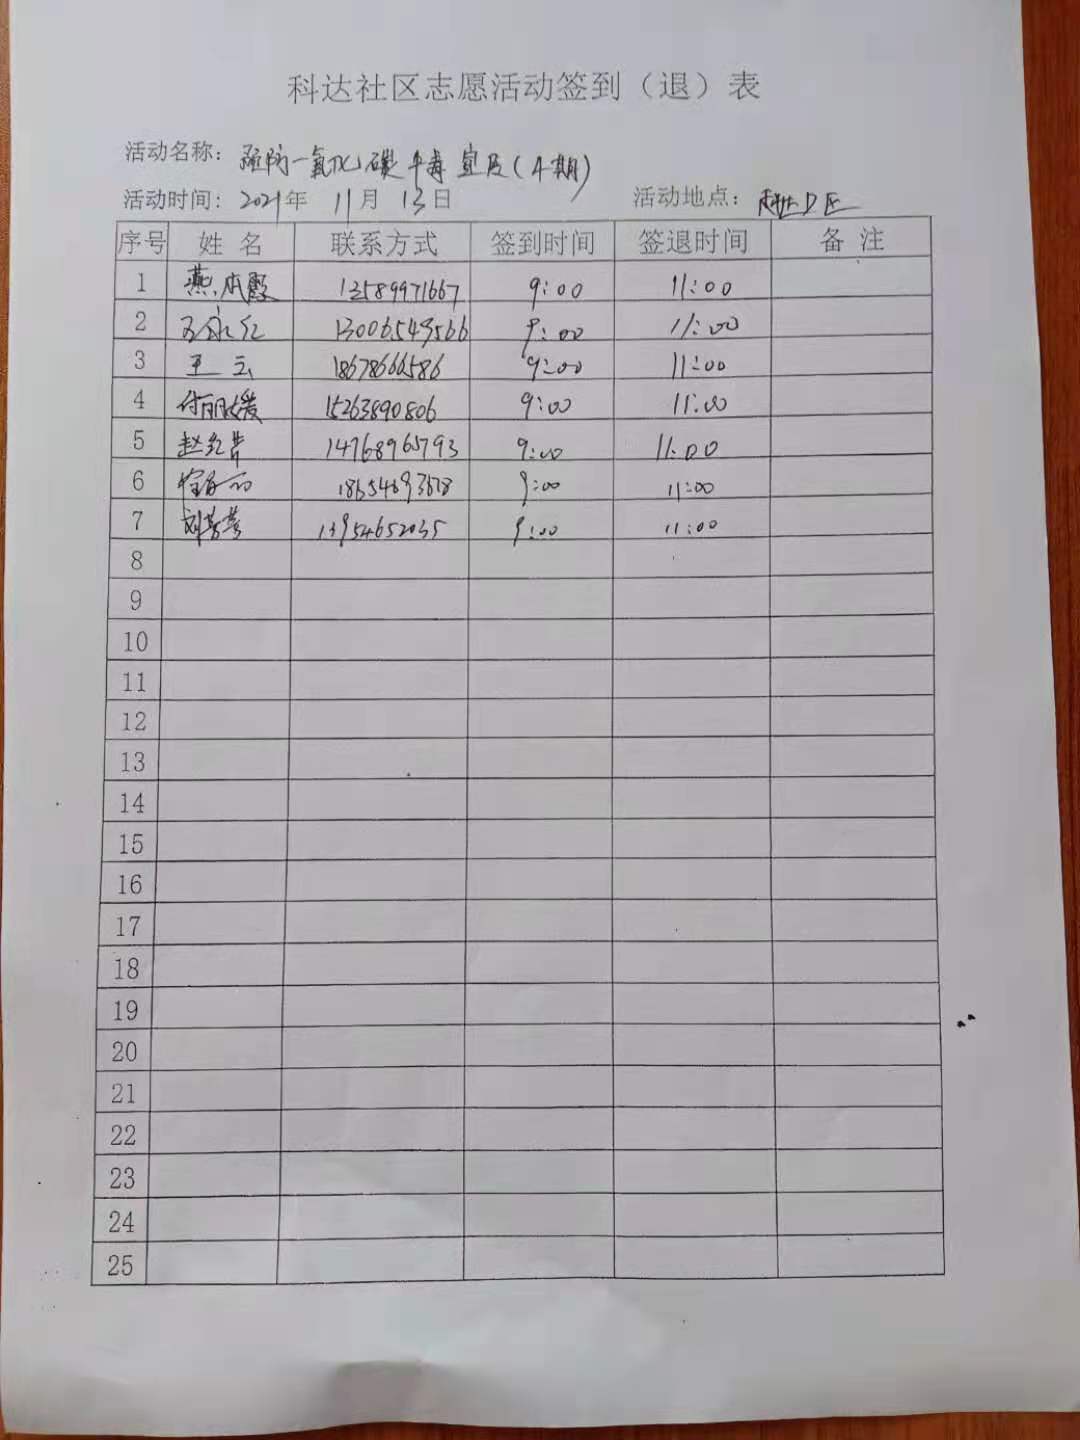 科达社区志愿活动签到（退）表
活动名称: 预防一氧化碳中毒宣及(4期)
活动时间: 2021年 11月 13日 活动地点: 科达D区
序号 姓 名 联系方式 签到时间 签退时间 备 注
1 燕本殿 13589971667 9:00 11:00
2 永红 13006549566 9:00 11:00
3 王云 18678666586 9:00 11:00
4 付丽媛 15263890806 9:00 11:00
5 赵 14768965793 9:00 11:00
6 9:00 11:00
7 刘芳芳 13954652035 9:00 11:00
8
9
10
11
12
13
14
15
16
17
18
19
20
21
22
23
24
25